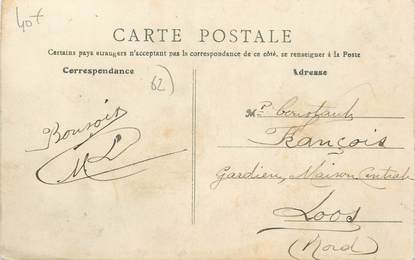 40f
CARTE POSTALE
Certains pays étrangers n'acceptant pas la correspondance de ce côté, se renseigner à la Poste
Correspondance
62)
Adresse
Bonsoir
ML
Mr Constant
François
Gardien, Maison Centrale
Loos
(Nord)